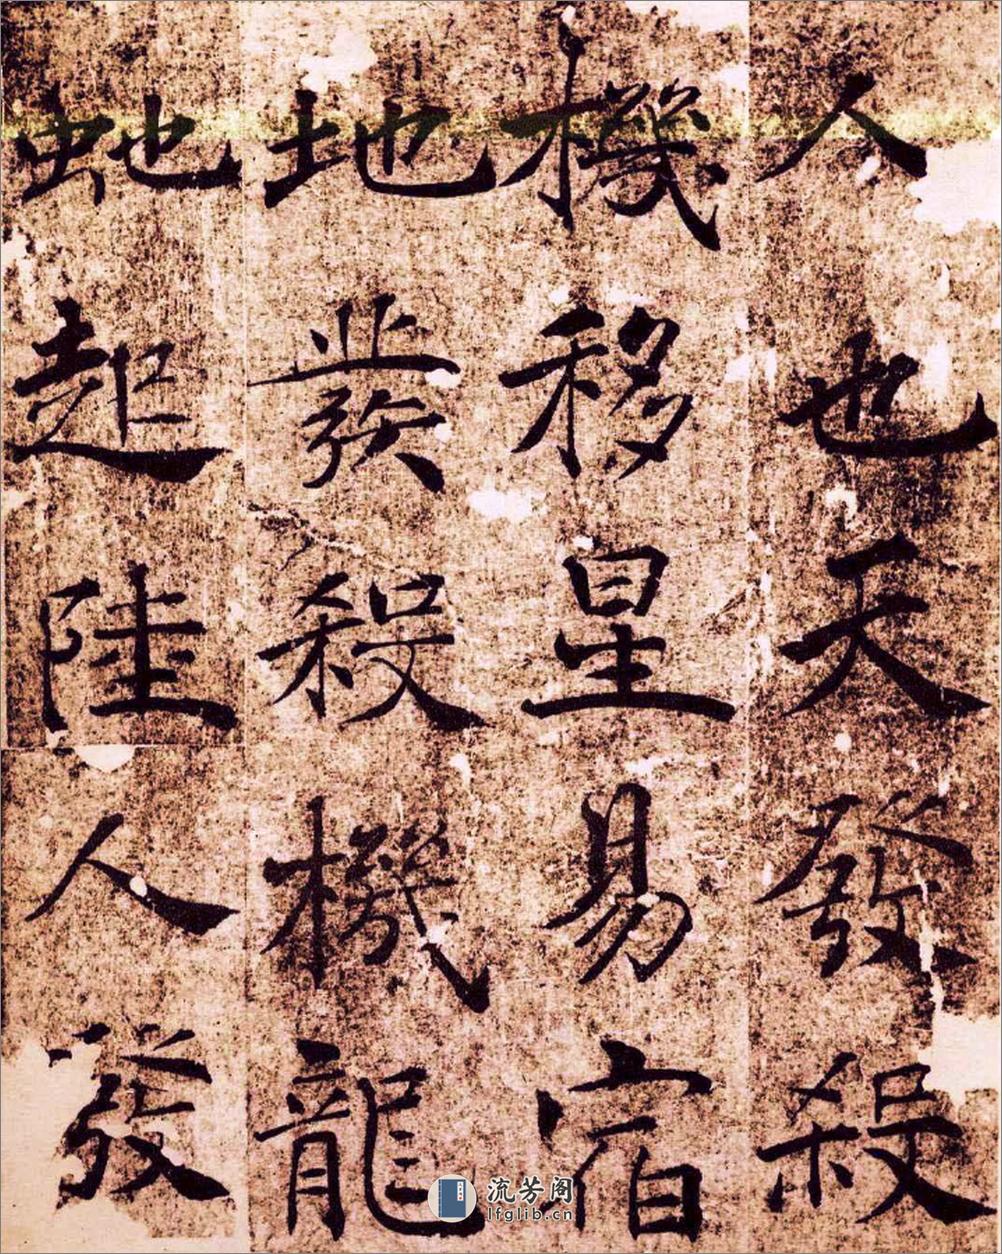 人也天發殺
機移星易宿
地發殺機龍
虵起陸人發
流芳阁
lfglib.cn